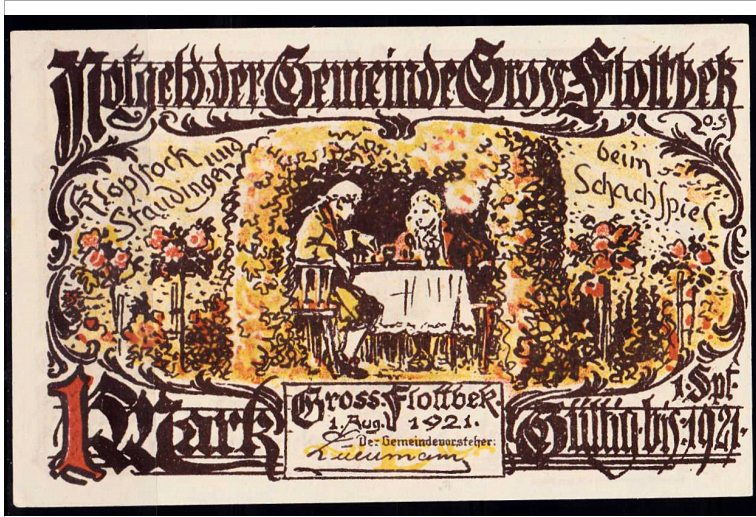 Notgeld der Gemeinde Gross Flottbek
O.S
Klopstock und
Staudinger
beim
Schachspiel
1 Mark
Gross-Flottbek.
1. Aug. 1921.
Der Gemeindevorsteher:
1. Spt.
Gültig bis 1921.